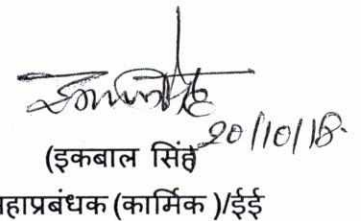 20/10/18
(इकबाल सिंह
महाप्रबंधक (कार्मिक )/ईई